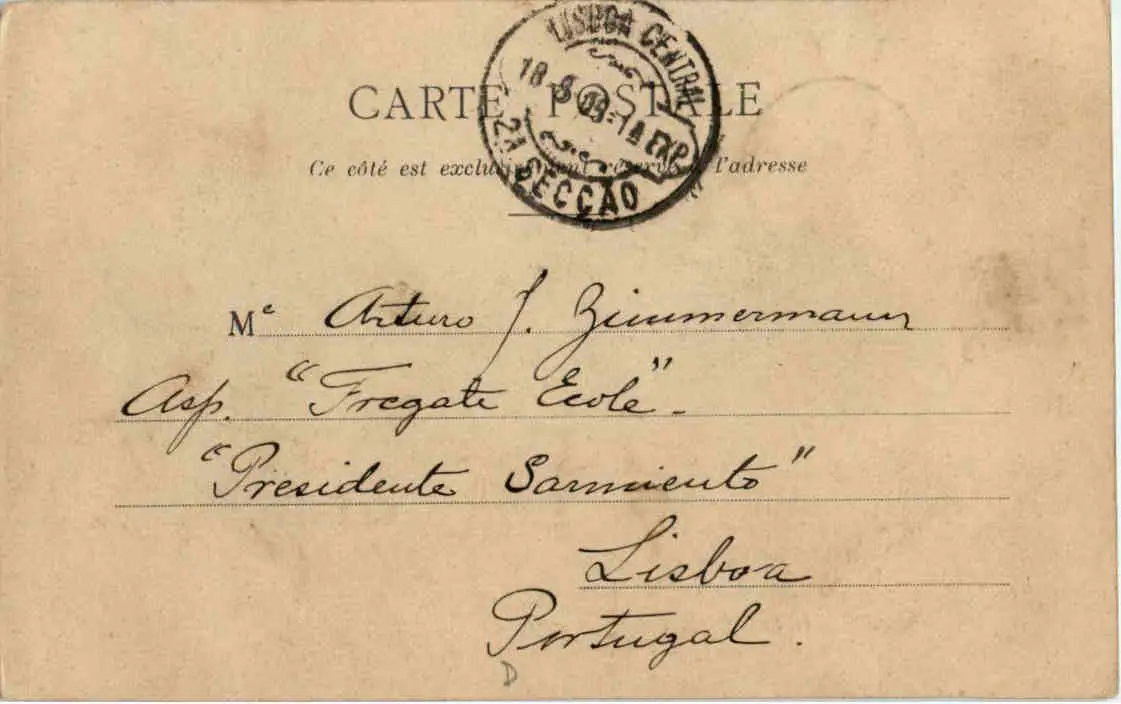 LISBOA CENTRAL
18-8-09-1A EXP
2A SECÇÃO
CARTE POSTALE
Ce côté est exclusivement réservé à l'adresse
Mᵉ Arturo J. Zimmermann
Asp. "Fregate Ecole"-
"Presidente Sarmiento"
Lisboa
Portugal.
D